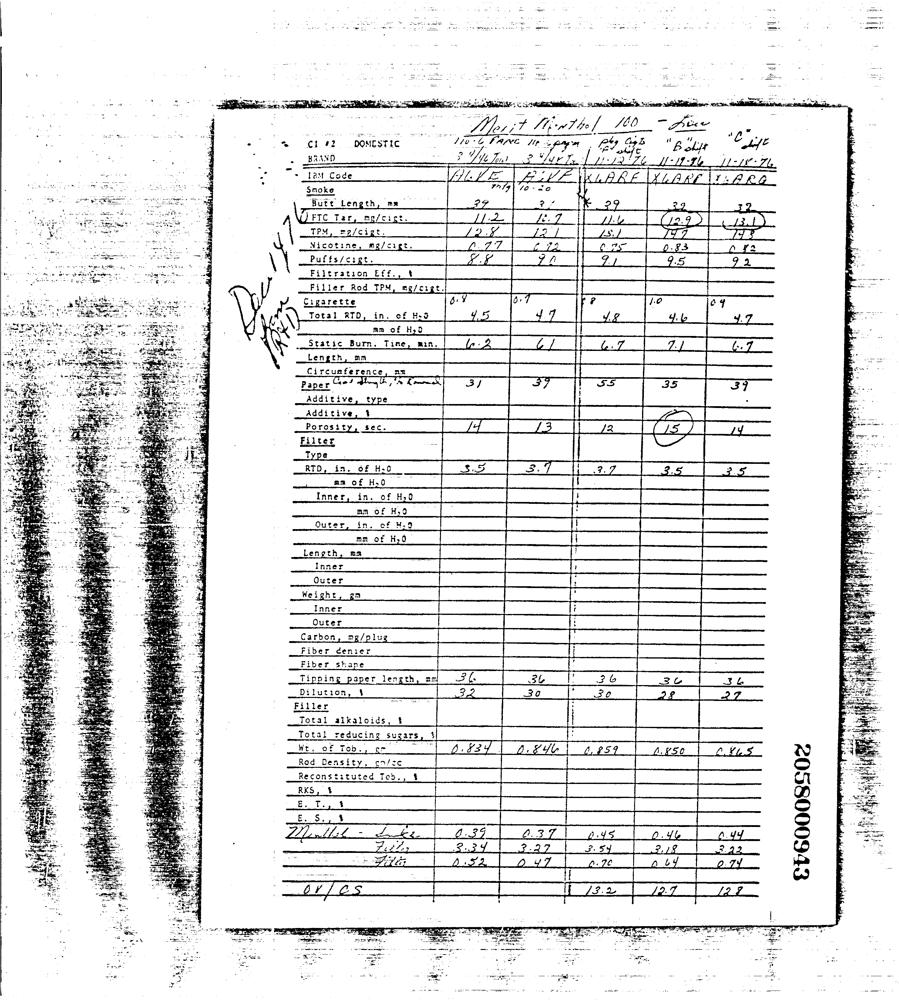 Merit Menthol 100 -
CI #2 DOMESTIC "B" shift "C" shift
BRAND 11-12-76 11-18-76
IBM Code XLARF XLARF
Smoke 10-20
Butt Length, mm 39 39 32
FTC Tar, mg/cigt. 11.2 11.6 12.9 13.1
TPM, mg/cigt. 12.8 12.1 15.1 14.7
Nicotine, mg/cigt. 0.77 0.72 0.75 0.83 0.82
Puffs/cigt. 8.8 9.0 9.1 9.5 9.2
Filtration Eff., %
Filler Rod TPM, mg/cigt.
Cigarette 1.0
Total RTD, in. of H2O 4.5 4.7 4.8 4.6 4.7
mm of H2O
Static Burn. Time, min. 6.2 6.1 6.7 7.1 6.7
Length, mm
Circumference, mm
Paper 31 39 55 35 39
Additive, type
Additive, %
Porosity, sec. 14 13 12 15 14
Filter
Type
RTD, in. of H2O 3.5 3.7 3.7 3.5 3.5
mm of H2O
Inner, in. of H2O
mm of H2O
Outer, in. of H2O
mm of H2O
Length, mm
Inner
Outer
Weight, gm
Inner
Outer
Carbon, mg/plug
Fiber denier
Fiber shape
Tipping paper length, mm 36 36 36 36 36
Dilution, % 32 30 30 28 27
Filler
Total alkaloids, %
Total reducing sugars, %
Wt. of Tob., gm 0.834 0.846 0.859 0.850 0.865
Rod Density, gm/cc
Reconstituted Tob., %
RKS, %
E. T., %
E. S., %
Menthol - 0.39 0.37 0.45 0.46 0.44
3.34 3.27 3.54 3.18 3.23
Filter 0.52 0.47 0.70 0.64 0.74
OV/CS 13.2 12.7 12.8
2058000943